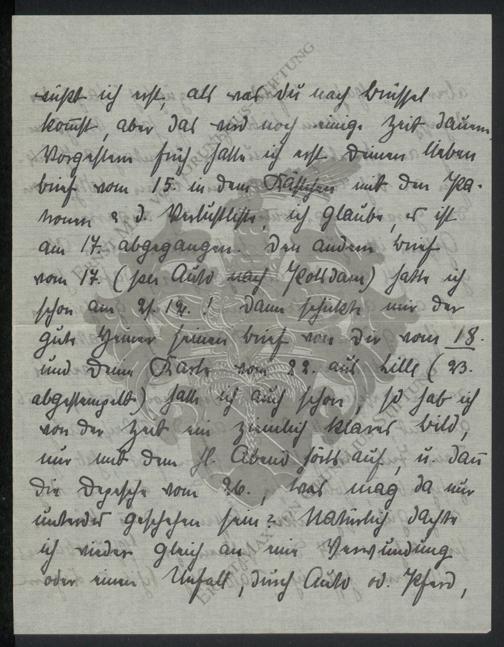 wüßt ich erst, als was du nach Brüssel
kom̅st, aber das wird noch einige Zeit dauern
Vorgestern früh hatte ich erst Deinen lieben
brief vom 15. in dem Kästchen mit den Pa-
tronen & d. Verlustliste, ich glaube, es ist
am 17. abgegangen. Den andern Brief
vom 17. (per Auto nach Potsdam) hatte ich
schon am 21.12.! Dann schickte mir der
gute Heiner seinen brief von Dir vom 18.
und Deine Karte vom 22. aus Lille (23.
abgestempelt) hatte ich auch schon, so hab ich
von der Zeit ein ziemlich klares Bild,
nur mit dem hl. Abend hörts auf, u. dan̅
die Depesche vom 26., was mag da nur
unterdes geschehen sein? Natürlich dachte
ich wieder gleich an eine Verwundung
oder einen Unfall, durch Auto od. Pferd,
ERNST-MAX VON GRUNELIUS-STIFTUNG